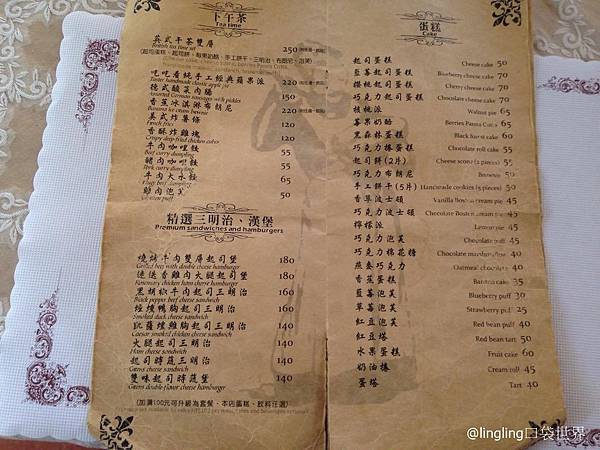 下午茶
Tea time
英式午茶雙層 250
British tea time set
吃吃看純手工經典蘋果派 220
德式酸菜肉腸 150
Assorted German sausages with pickles
香蕉冰淇淋布朗尼 220
Banana ice cream brownie
美式炸薯條 120
French fries
香酥炸雞塊 120
Crispy deep-fried chicken cubes
牛肉咖哩餃 55
Beef curry dumpling
豬肉咖哩餃 55
牛肉大水餃 65
雞肉泡芙 50
Chicken puff
精選三明治、漢堡
Premium sandwiches and hamburgers
燒烤牛肉雙層起司堡 180
Grilled beef with double cheese hamburger
迷迭香雞肉火腿起司堡 180
Rosemary chicken ham cheese hamburger
黑胡椒牛肉起司三明治 160
Black pepper beef cheese sandwich
煙燻鴨胸起司三明治 160
Smoked duck cheese sandwich
凱薩燻雞起司三明治 140
Caesar smoked chicken cheese sandwich
火腿起司三明治 140
Ham cheese sandwich
起司時蔬三明治 140
Greens cheese sandwich
雙味起司時蔬堡 140
Greens double-flavor cheese hamburger
(加價100元可升級為套餐、本店蛋糕、飲料任選)
蛋糕
Cake
起司蛋糕 Cheese cake 50
藍莓起司蛋糕 Blueberry cheese cake 70
櫻桃起司蛋糕 Cherry cheese cake 70
巧克力起司蛋糕 Chocolate cheese cake 70
核桃派 Walnut pie 65
莓果奶酪 Berries Panna Cotta 65
黑森林蛋糕 Black forest cake 60
巧克力捲蛋糕 Chocolate roll cake 55
起司餅(2片) Cheese scone (2 pieces) 55
巧克力布朗尼 Brownie 50
手工餅干(5片) Handmade cookies (5 pieces) 50
香草波士頓 Vanilla Boston cream pie 45
巧克力波士頓 Chocolate Boston cream pie 45
檸檬派 Lemon pie 45
巧克力泡芙 Chocolate puff 45
巧克力棉花糖 Chocolate marshmallow 40
燕麥巧克力 Oatmeal chocolate 40
香蕉蛋糕 Banana cake 35
藍莓泡芙 Blueberry puff 30
草莓泡芙 Strawberry puff 25
紅豆泡芙 Red bean puff 40
紅豆塔 Red bean tart 50
水果蛋糕 Fruit cake 60
奶油捲 Cream roll 45
蛋塔 Tart 40
@lingling口袋世界